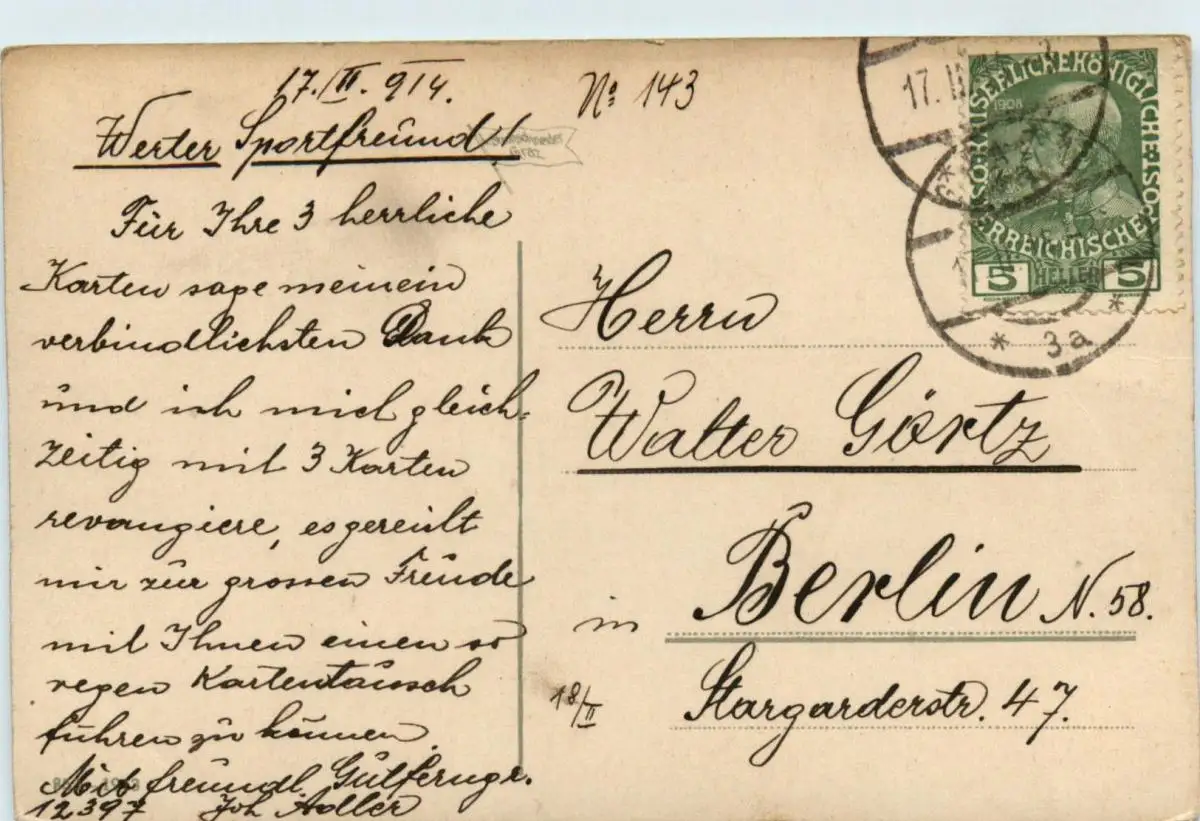 17. II. 914.
Nº 143
Werter Sportfreund!
Für Ihre 3 herrliche
Karten sage meinein
verbindlichsten Dank
und ich mich gleich-
zeitig mit 3 Karten
revangiere, es gereicht
mir zur grossen Freude
mit Ihnen einen so
regen Kartentausch
führen zu können.
Mit freundl.
12397 Joh Adler
Graz
Herrn
Walter Görtz
in Berlin N. 58.
Stargarderstr. 47.
18/II
17. II
* 3a *
1908
KAISERLICHE KÖNIGLICHE
ÖSTERREICHISCHE POST
5 HELLER 5